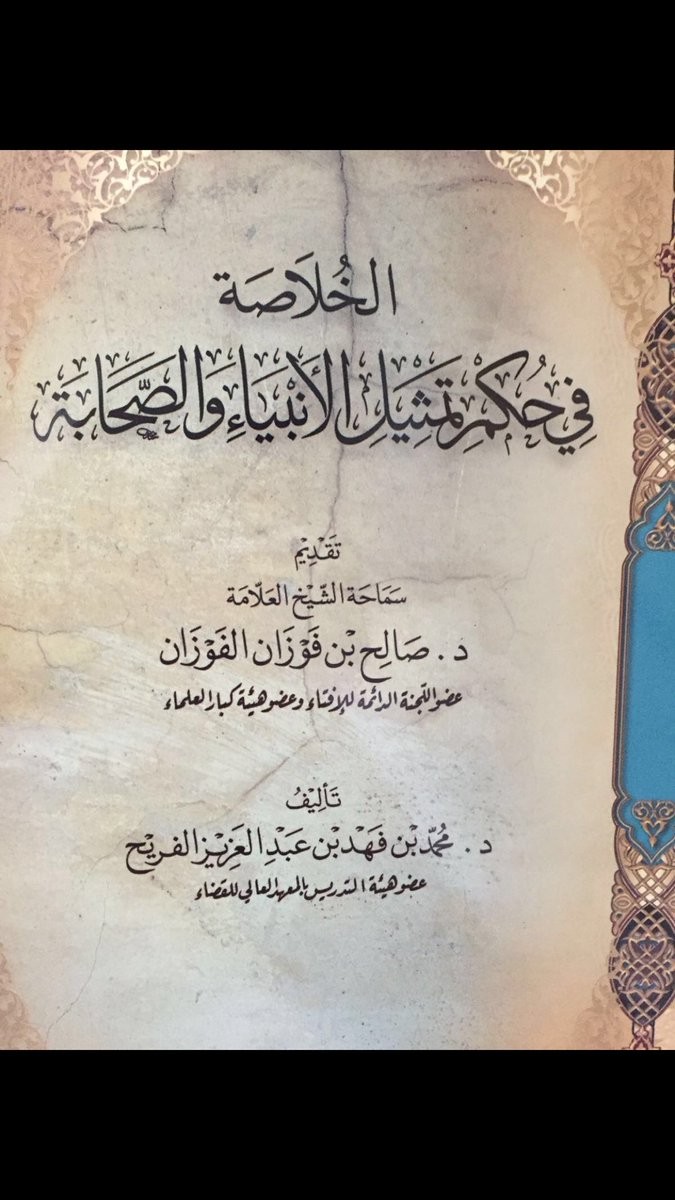 الخُلَاصَة
فِي حُكْمِ تَمْثِيلِ الأَنْبِيَاءِ وَالصَّحَابَة
تَقْدِيْم
سَمَاحَة الشَّيْخ العَلَّامَة
د. صَالِح بْن فَوْزَان الفَوْزَان
عضو اللجنة الدائمة للإفتاء وعضو هيئة كبار العلماء
تَأْلِيْفُ
د. مُحَمَّد بْن فَهْد بْن عَبْدِ العَزِيْز الفريْح
عضو هيئة التدريس بالمعهد العالي للقضاء